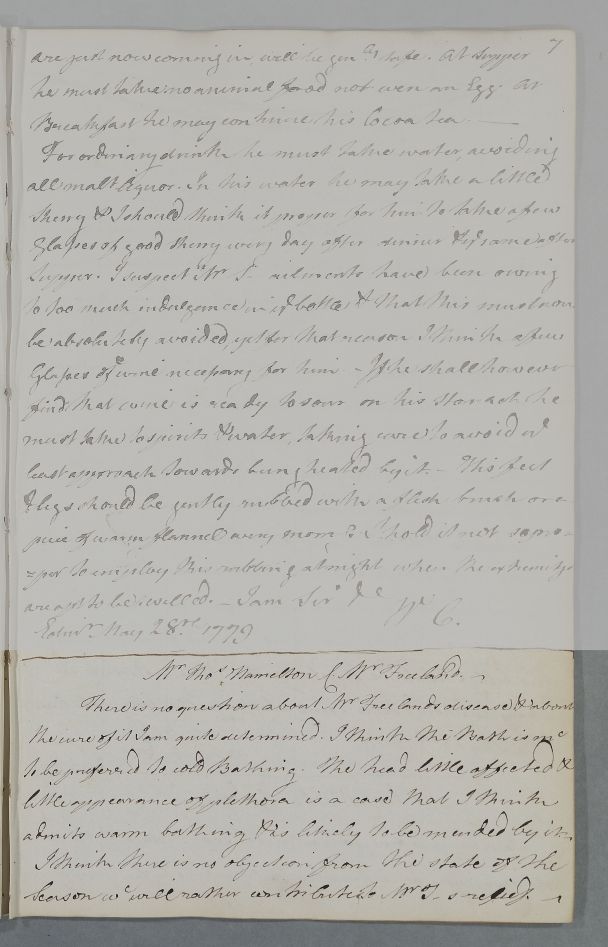 7
are just now coming in, will be gen.lly safe. At supper
he must take no animal food not even an Egg. At
Breakfast he may continue his Cocoa tea. —
For ordinary drink he must take water, avoiding
all malt liquor. In his water he may take a little
Sherry & I should think it proper for him to take a few
Glasses of good Sherry every day after dinner & some after
Supper. I suspect Mr F– ailments have been owing
to too much indulgence in ye bottle & that this must now
be absolutely avoided yet for that reason I think a few
Glasses of wine necessary for him – If he shall however
find that wine is ready to sour on his stomach he
must take to spirits & water, taking care to avoid ye
least approach towards being heated by it. – His feet
& legs should be gently rubbed with a flesh brush or a
piece of warm flannel every morng I hold it not so pro-
-per to employ this rubbing at night when the extremitys
are apt to be swelled. – I am Sir &c W. C.
Edinr. May 28th 1779
Mr Thos Hamielton C Mr Freeland. –
There is no question about Mr Freelands disease & about
the cure of it I am quite determined. I think the Bath is
to be preferred to cold Bathing. The head little affected &
little appearance of plethora is a case that I think
admits warm bathing & is likely to be mended by it.
I think there is no objection from the state of the
Season wc will rather contribute to Mr F–s relief. –